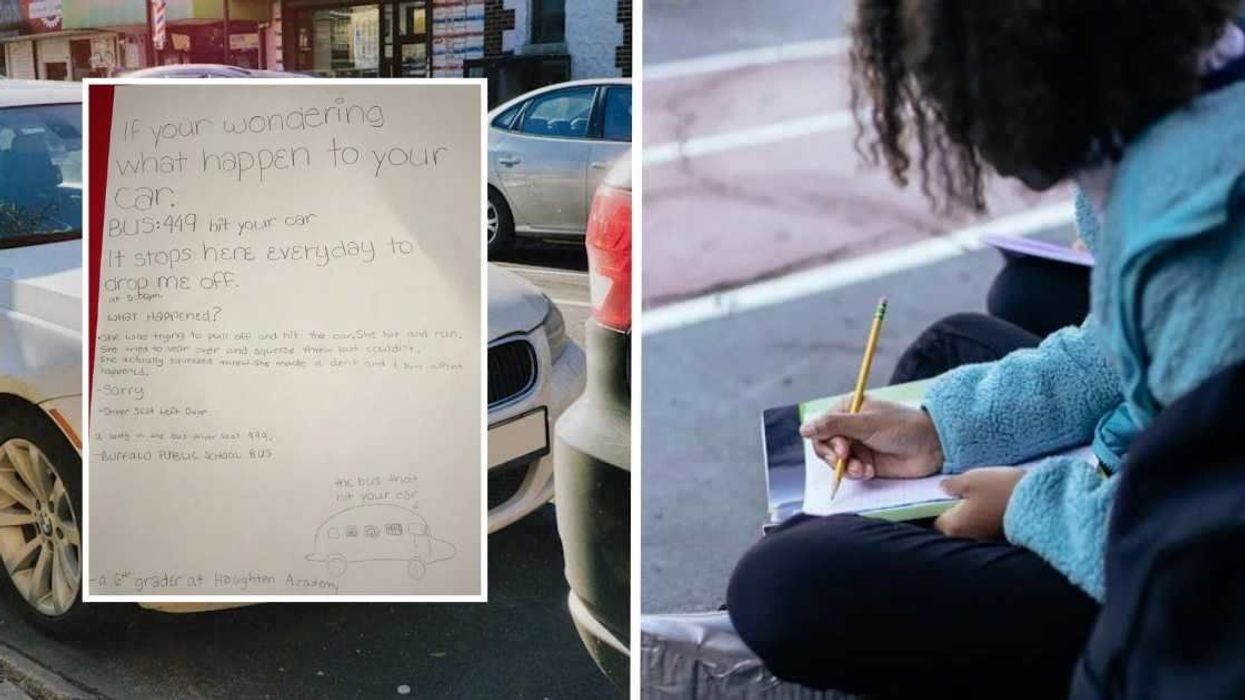 If your wondering
what happen to your
car.
BUS:449 hit your car
It stops here everyday to
drop me off.
at 5:00pm
WHAT HAPPENED?
She was trying to pull off and hit the car. She hit and run.
She tried to vear over and squeeze threw but couldn't.
She actually squeezed threw. She made a dent and I saw what
happened.
-Sorry
-Driver Seat Left Door
a lady in the bus driver seat 449.
-BUFFALO PUBLIC SCHOOL BUS
the bus that
hit your car
-a 6th grader at Houghten Academy